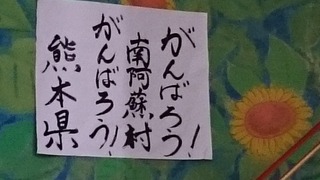 がんばろう!
南阿蘇村
がんばろう!
熊本県